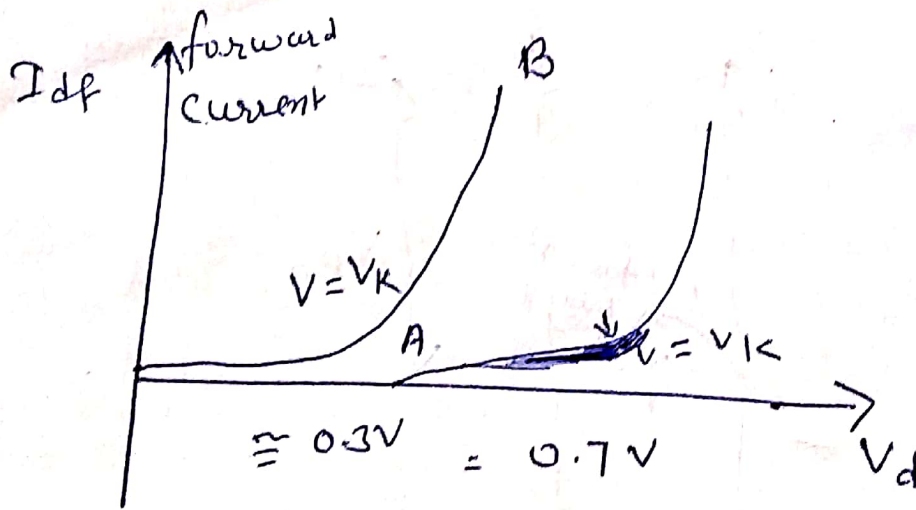 I df
forward
current
B
V = VK
A
V = VK
≅ 0.3V
= 0.7 V
Vd